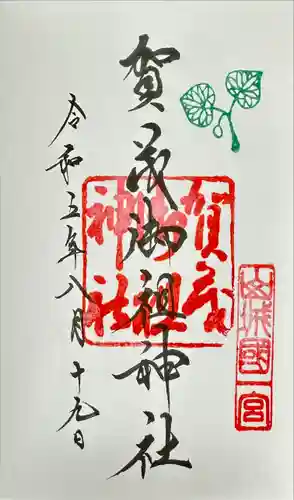 山城國一宮
賀茂御祖神社
賀茂御祖神社
令和五年八月十九日